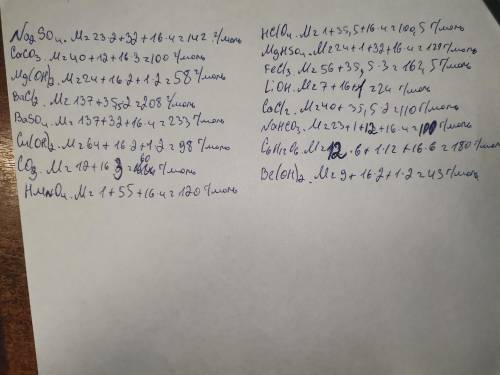 Na2SO4. M=23·2+32+16·4=142 г/моль
CaCO3. M=40+12+16·3=100 г/моль
Mg(OH)2. M=24+16·2+1·2=58 г/моль
BaCl2. M=137+35,5·2=208 г/моль
BaSO4. M=137+32+16·4=233 г/моль
Cu(OH)2. M=64+16·2+1·2=98 г/моль
CO3. M=12+16·3=60 г/моль
HMnO4. M=1+55+16·4=120 г/моль
HClO4. M=1+35,5+16·4=100,5 г/моль
MgHSO4. M=24+1+32+16·4=121 г/моль
FeCl3. M=56+35,5·3=162,5 г/моль
LiOH. M=7+16+1=24 г/моль
CaCl2. M=40+35,5·2=110 г/моль
NaHCO3. M=23+1+12+16·4=100 г/моль
C6H12O6. M=12·6+1·12+16·6=180 г/моль
Be(OH)2. M=9+16·2+1·2=43 г/моль